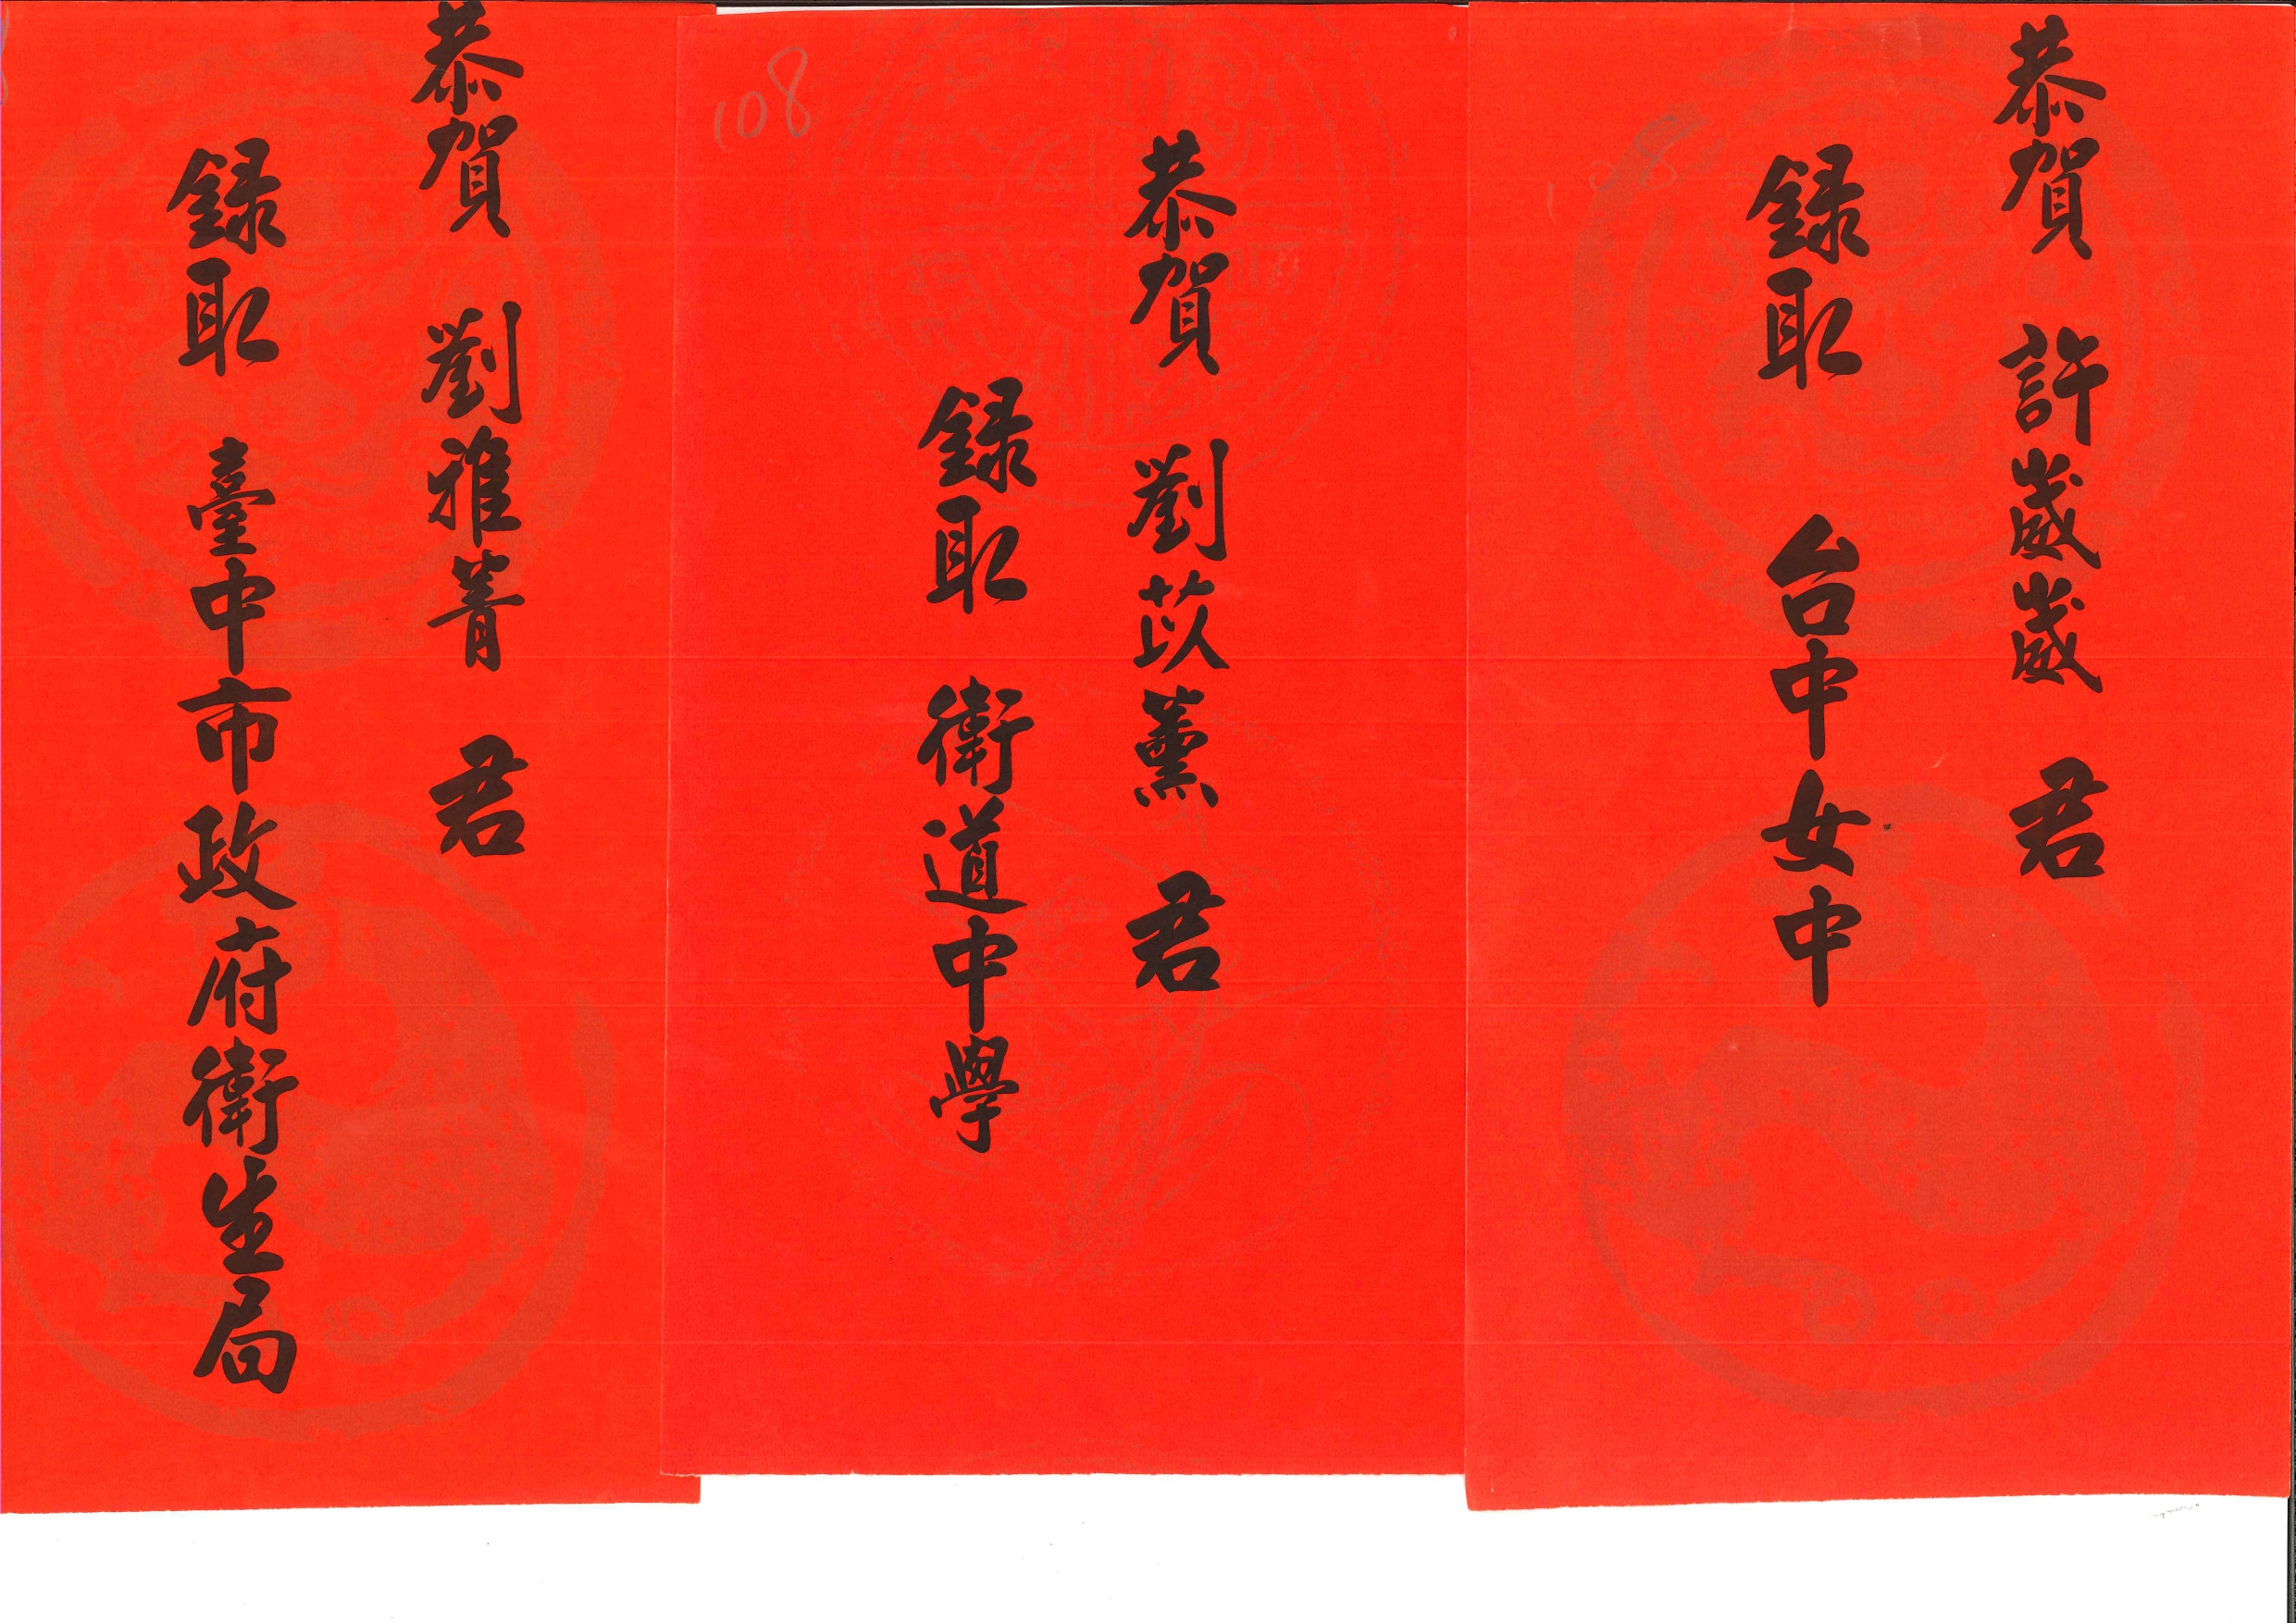 恭賀 許崴崴 君
錄取 台中女中
108
恭賀 劉苡薰 君
錄取 衛道中學
108
恭賀 劉雅菁 君
錄取 臺中市政府衛生局